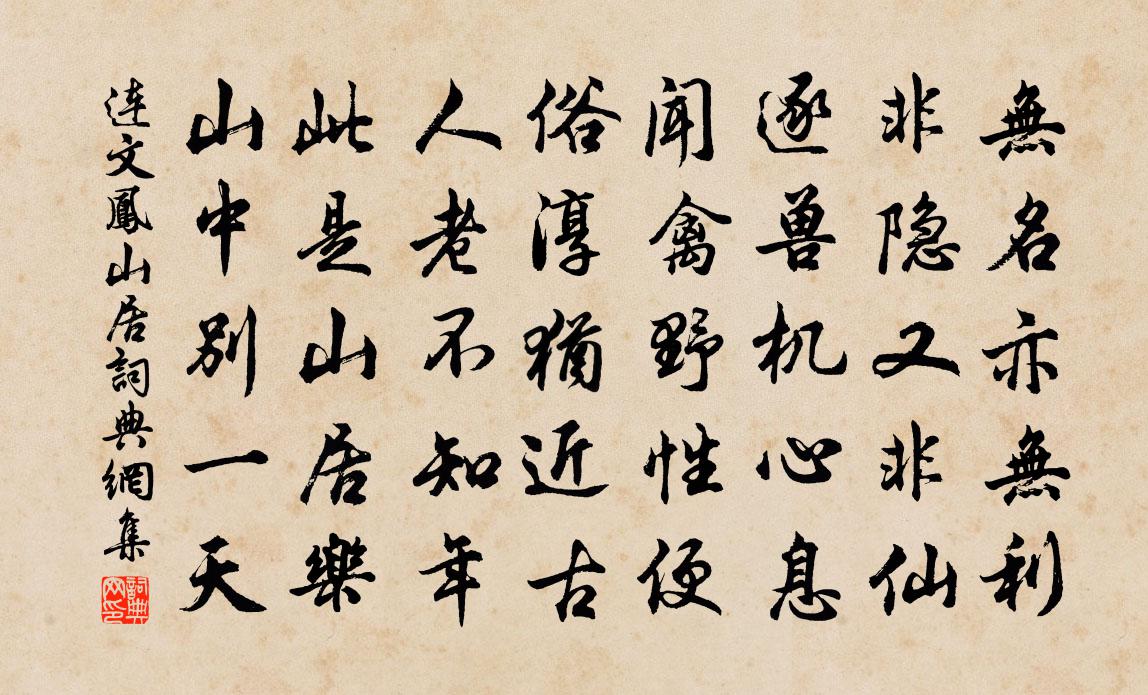 無名亦無利
非隐又非仙
逐兽机心息
闻禽野性便
俗淳猶近古
人老不知年
此是山居樂
山中别一天
连文鳳山居詞典網集
詞典
网印